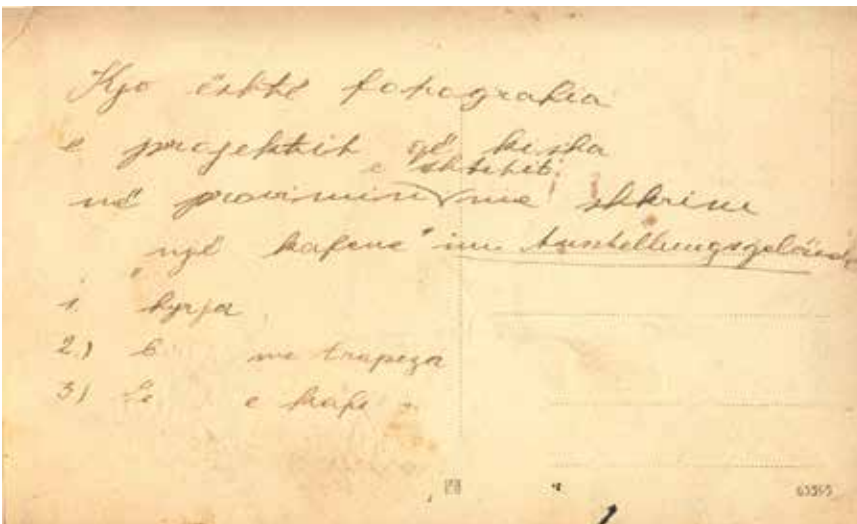 Kjo është fotografia
e projektit që kisha
në provimin e shtetit me shkrim
"një kafene" im Ausstellungsgelände
1. hyrja
2.) me trapeza
3) e kafe